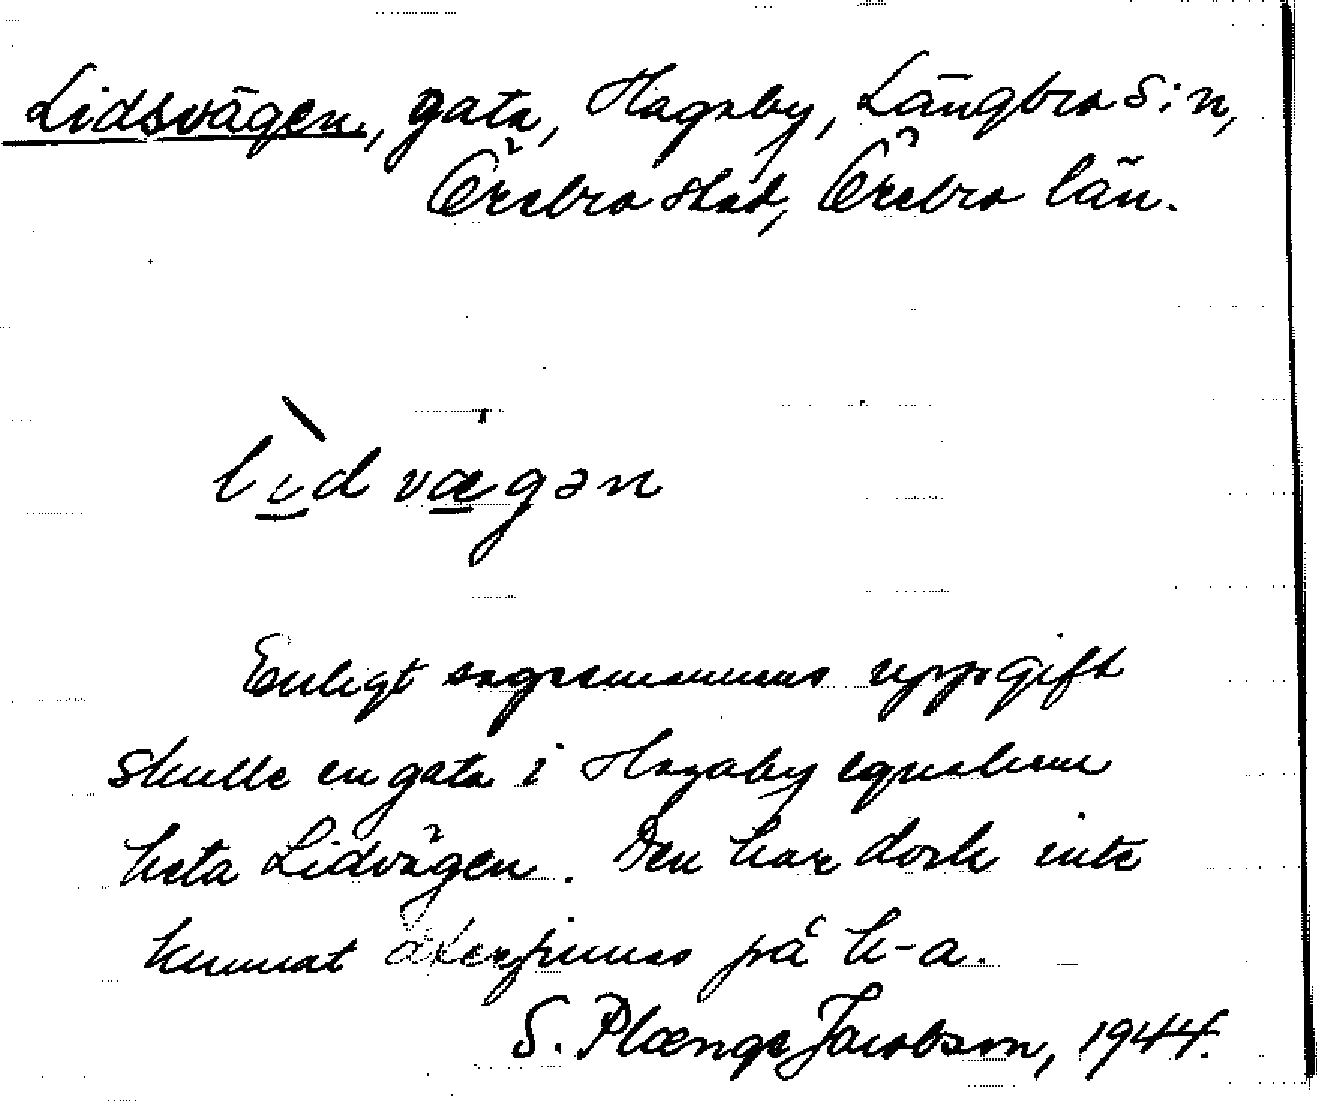 Lidsvägen, gata, Hagaby, Längbro S:n,
Örebro stad, Örebro län.
lìdvægən
Enligt sagesmannens uppgift
skulle en gata i Hagaby egnahem
heta Lidvägen. Den har dock inte
kunnat återfinnas på k-a.
S. Plænge Jacobson, 1944.